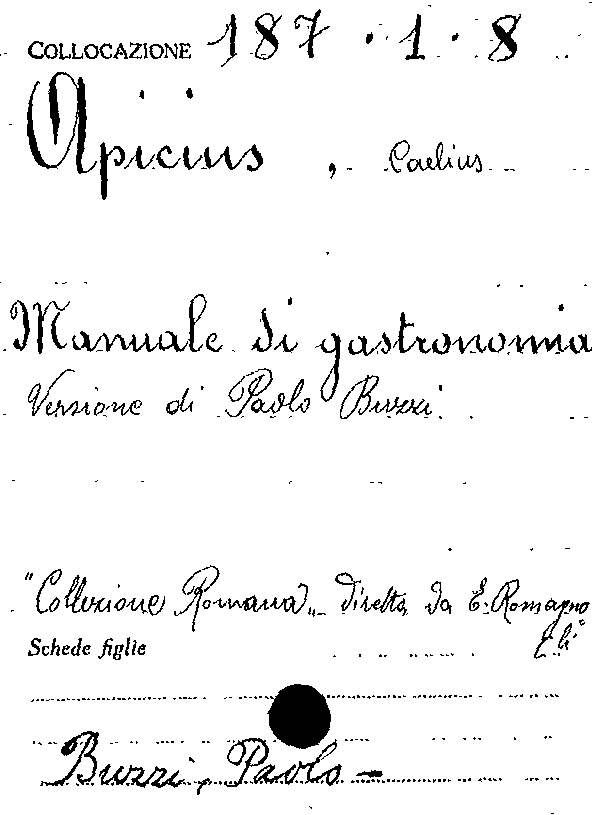 COLLOCAZIONE 187.1.8
Apicius, Caelius
Manuale di gastronomia
Versione di Paolo Buzzi
"Collezione Romana" diretta da E. Romagno
li
Schede figlie
Buzzi, Paolo -